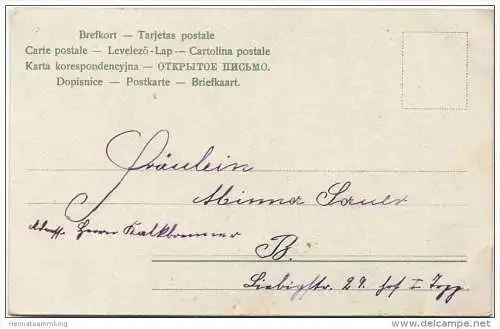 Brefkort — Tarjetas postale
Carte postale — Levelező-Lap — Cartolina postale
Karta korespondencyjna — ОТКРЫТОЕ ПИСЬМО.
Dopisnice — Postkarte — Briefkaart.
Fräulein
Minna Sauer
Adress. Herrn Kalkbrenner
B.
Liebigstr. 29. Hof I Trpp.
Heimatsammlung
www.delcampe.net